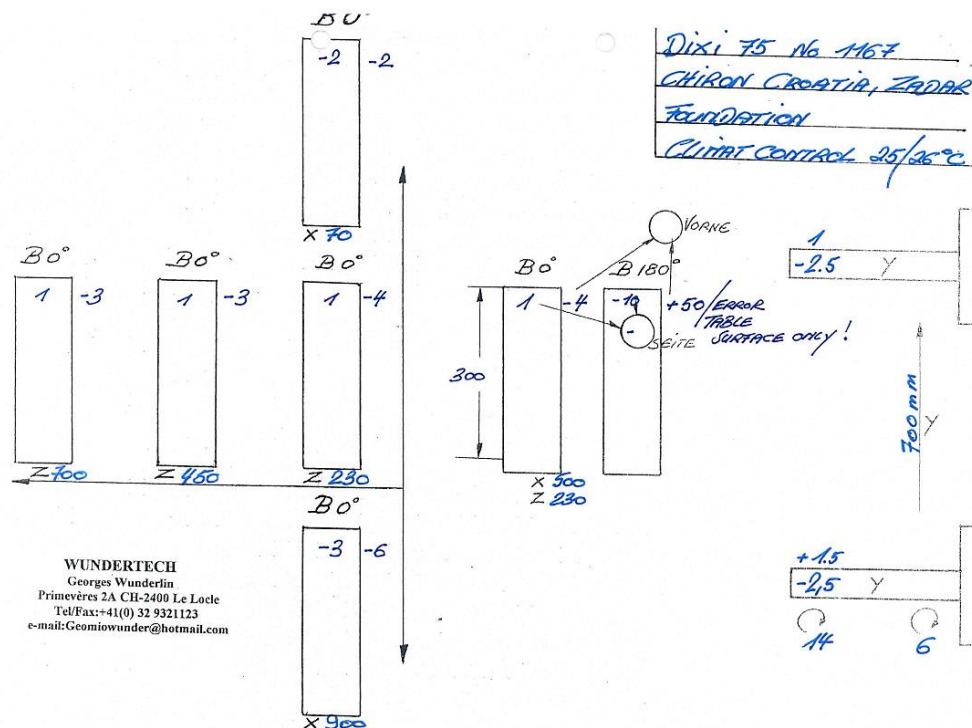 B 0°
-2 -2
X 70
DIXI 75 No 1167
CHIRON CROATIA, ZADAR
FOUNDATION
CLIMAT CONTROL 25/26°C
B 0°
1 -3
Z 700
B 0°
1 -3
Z 450
B 0°
1 -4
Z 230
B 0°
1 -4
300
X 500
Z 230
VORNE
B 180°
-10
+50/ERROR
TABLE
SURFACE ONLY!
-
SEITE
1
-2.5 Y
700mm
Y
+1.5
-2,5 Y
14 6
B 0°
-3 -6
X 900
WUNDERTECH
Georges Wunderlin
Primevères 2A CH-2400 Le Locle
Tel/Fax:+41(0) 32 9321123
e-mail:Geomiowunder@hotmail.com